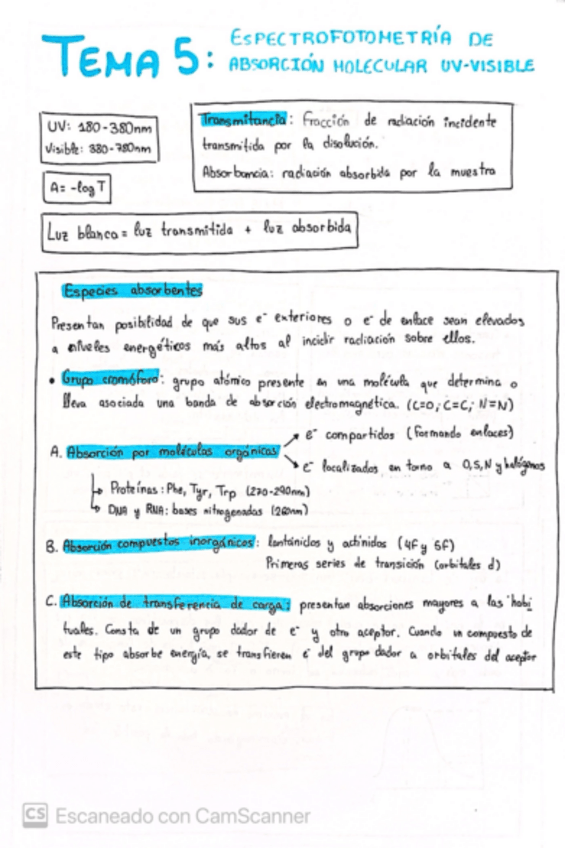 TEMA 5: ESPECTROFOTOMETRÍA DE
ABSORCIÓN MOLECULAR UV-VISIBLE
UV: 180-380nm
Visible: 380-780nm
A= -log T
Transmitancia: Fracción de radiación incidente
transmitida por la disolución.
Absorbancia: radiación absorbida por la muestra
Luz blanca = luz transmitida + luz absorbida
Especies absorbentes
Presentan posibilidad de que sus e⁻ exteriores o e⁻ de enlace sean elevados
a niveles energéticos más altos al incidir radiación sobre ellos.
• Grupo cromóforo: grupo atómico presente en una molécula que determina o
lleva asociada una banda de absorción electromagnética. (C=O; C=C; N=N)
A. Absorción por moléculas orgánicas
e⁻ compartidos (formando enlaces)
e⁻ localizados en torno a O,S,N y halógenos
Proteínas: Phe, Tyr, Trp (270-290nm)
DNA y RNA: bases nitrogenadas (260nm)
B. Absorción compuestos inorgánicos: lantánidos y actínidos (4f y 5f)
Primeras series de transición (orbitales d)
C. Absorción de transferencia de carga: presentan absorciones mayores a las habi
tuales. Consta de un grupo dador de e⁻ y otro aceptor. Cuando un compuesto de
este tipo absorbe energía, se transfieren e⁻ del grupo dador a orbitales del aceptor
CS Escaneado con CamScanner